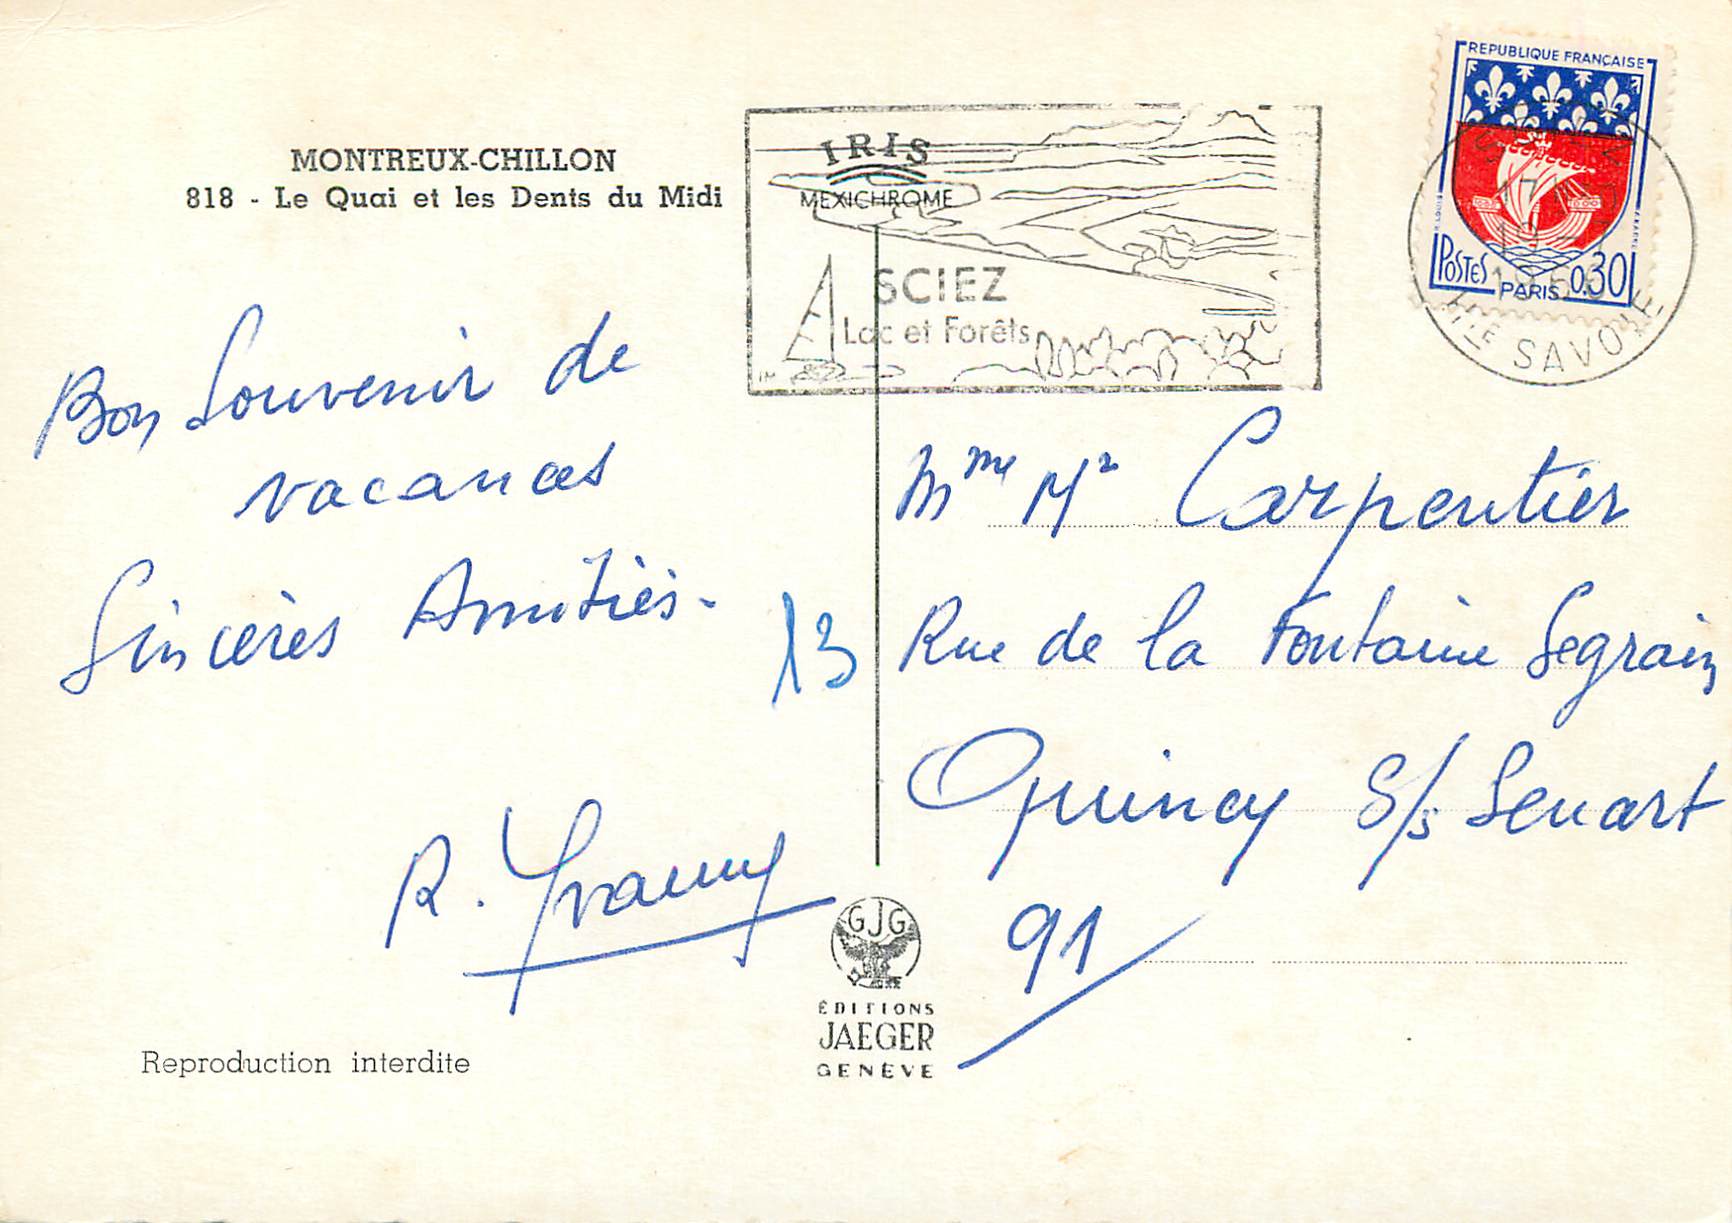 MONTREUX-CHILLON
818 - Le Quai et les Dents du Midi
IRIS
MEXICHROME
SCIEZ
Lac et Forêts
REPUBLIQUE FRANÇAISE
POSTES
PARIS
0,30
Hte SAVOIE
Bon Souvenir de
vacances
Sincères Amitiés -
13
Mme Mr Carpentier
Rue de la Fontaine Segrain
Quincy s/s Senart
91
GJG
ÉDITIONS
JAEGER
GENÈVE
Reproduction interdite